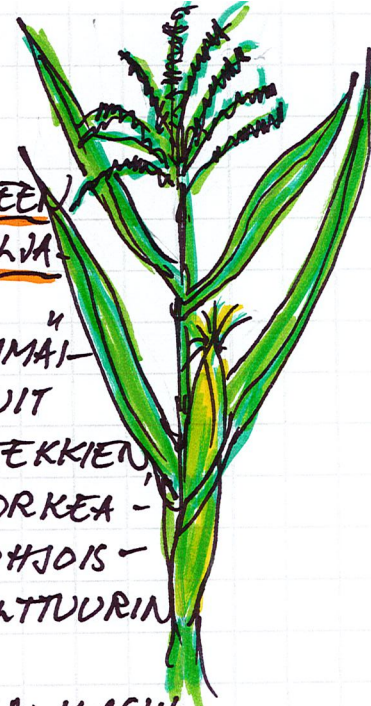 EEN
LJA-
"
IMAI-
UIT
EKKIEN
ORKEA-
OHJOIS-
LTTUURIN